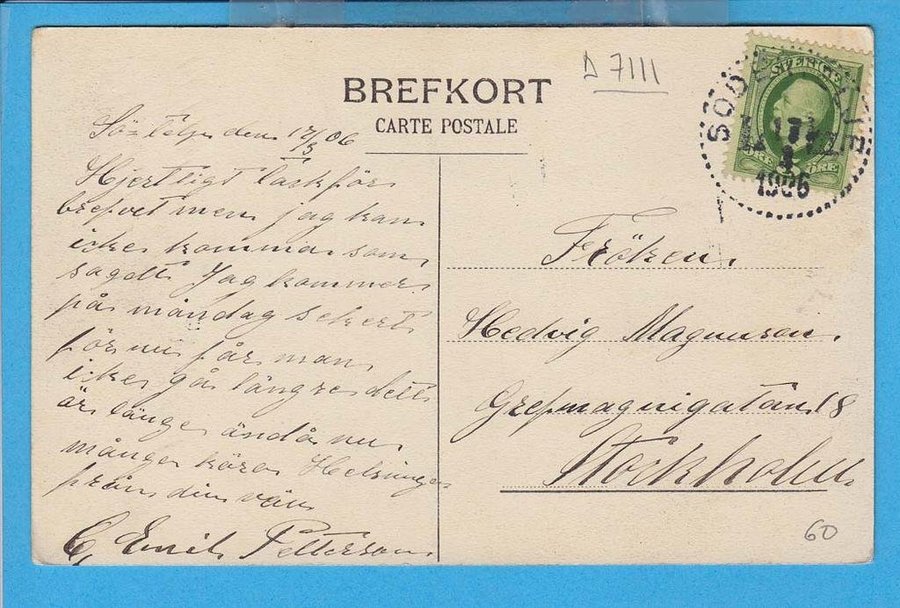 D 7111
BREFKORT
CARTE POSTALE
SÖDERTELJE
17 3
1906
SVERIGE
ÖRE
Södertelje den 17/3 06
Hjertligt tack för
brefvet men jag kan
icke komma som
sagdt Jag kommer
på måndag sekert
för nu får man
icke gå längre dett
är länge ändå nu
många kära Helsningar
från din vän
C, Emil Petterson
Fröken
Hedvig Magnuson.
Grefmagnigatan 18
Stockholm
60